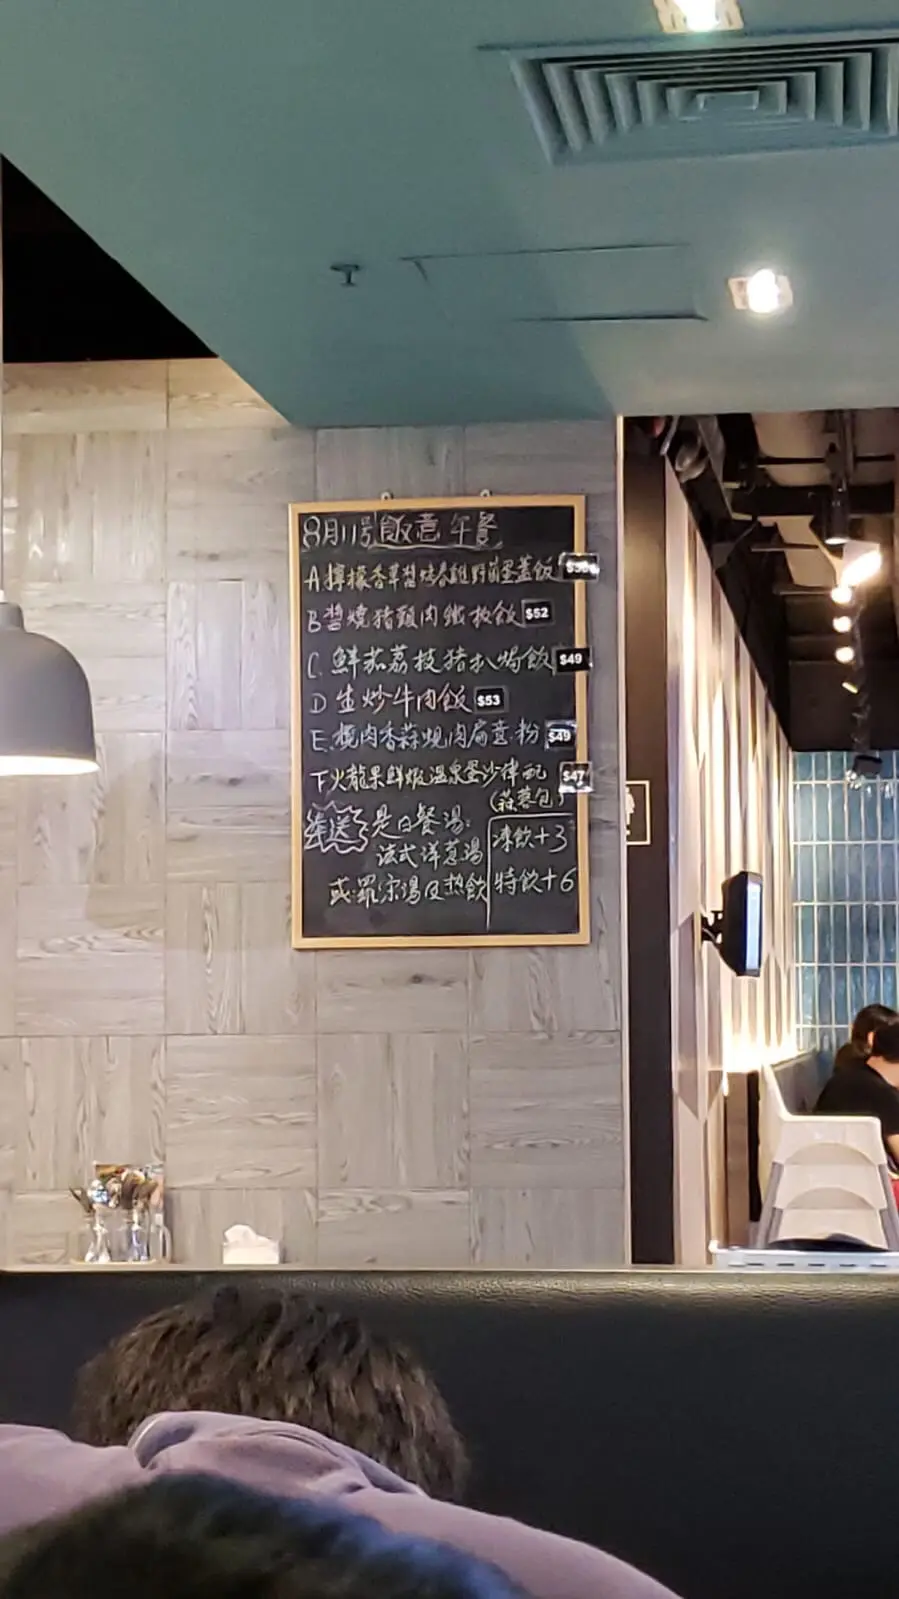 8月11号飯意午餐
A 檸檬香草醬燒春雞野菌蛋蓋飯
B 醬燒猪頸肉鐵板飯 $52
C. 鮮茄荔枝猪扒焗飯 $49
D 生炒牛肉飯 $53
E. 欖肉香蒜燒肉扁意粉 $49
F 火龍果鮮蝦溫泉蛋沙律配 $47
(蒜蓉包)
奉送 是日餐湯:
法式洋蔥湯
或:羅宋湯及热飲
凍飲+3
特飲+6